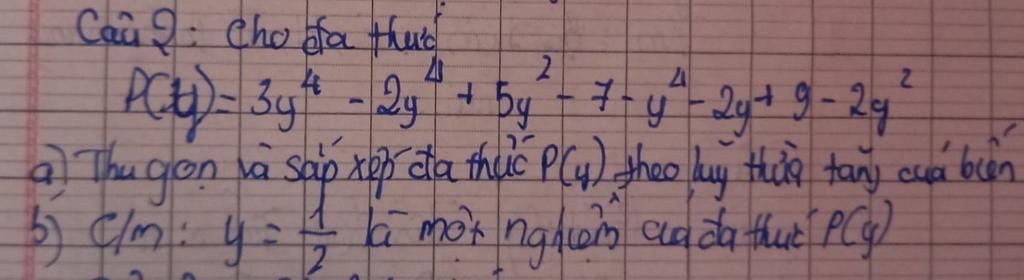 Câu 2: Cho đa thức
P(y) = 3y⁴ - 2y⁴ + 5y² - 7 - y⁴ - 2y + 9 - 2y²
a) Thu gọn và sắp xếp đa thức P(y) theo luỹ thừa tăng của biến
b) C/m: y = 1/2 là một nghiệm của đa thức P(y)